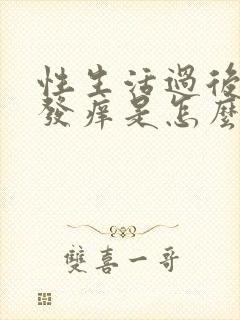 性生活過後
發痒是怎麼
雙喜一哥